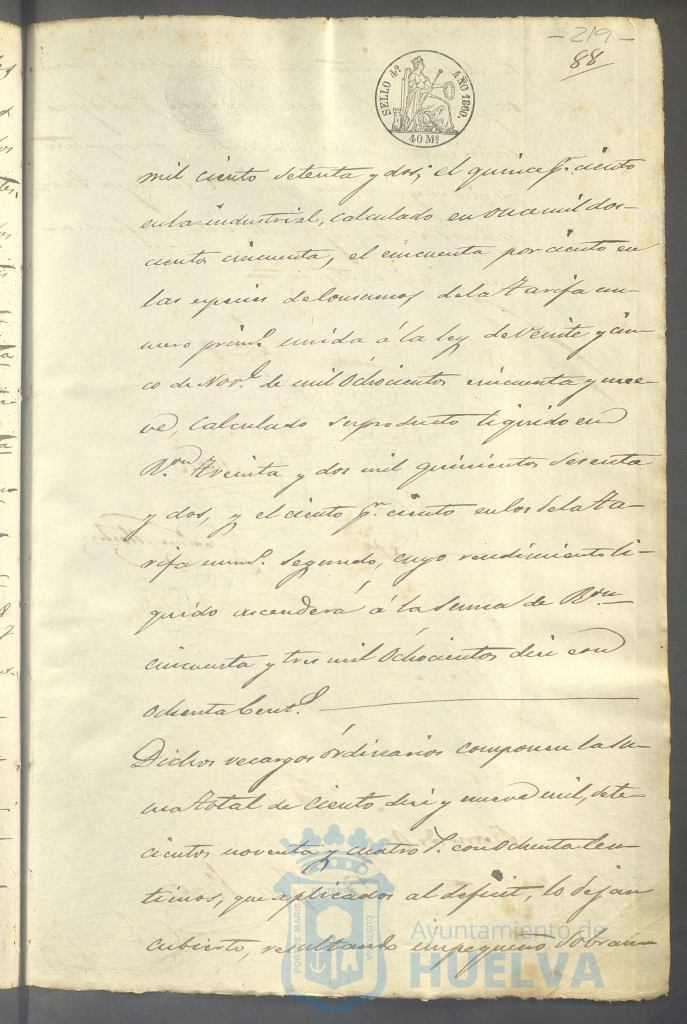 - 219 -
88
SELLO 4º AÑO 1860.
40 Ms
mil ciento setenta y dos; el quince pr. ciento
en la industrial, calculado en once mil dos-
cientos cincuenta, el cincuenta por ciento en
las especies de consumos de la tarifa nu-
mero prim.º unida á la ley de veinte y cin-
co de Nov.e de mil ochocientos cincuenta y nue-
ve, calculado su producto liquido en
R.on treinta y dos mil quinientos sesenta
y dos, y el ciento pr. ciento en los de la ta-
rifa num.º segundo, cuyo rendimiento li-
quido ascenderá á la suma de R.on
cincuenta y tres mil ochocientos diez con
ochenta Cent.s
Dichos recargos órdinarios componen la su-
ma total de ciento diez y nueve mil, sete-
cientos noventa y cuatro r. con ochenta cen-
timos, que aplicados al deficit, lo dejan
cubierto, resultando un pequeno sobran-
PORTUS MARIS ET TERRÆ CUSTODIA
Ayuntamiento de
HUELVA